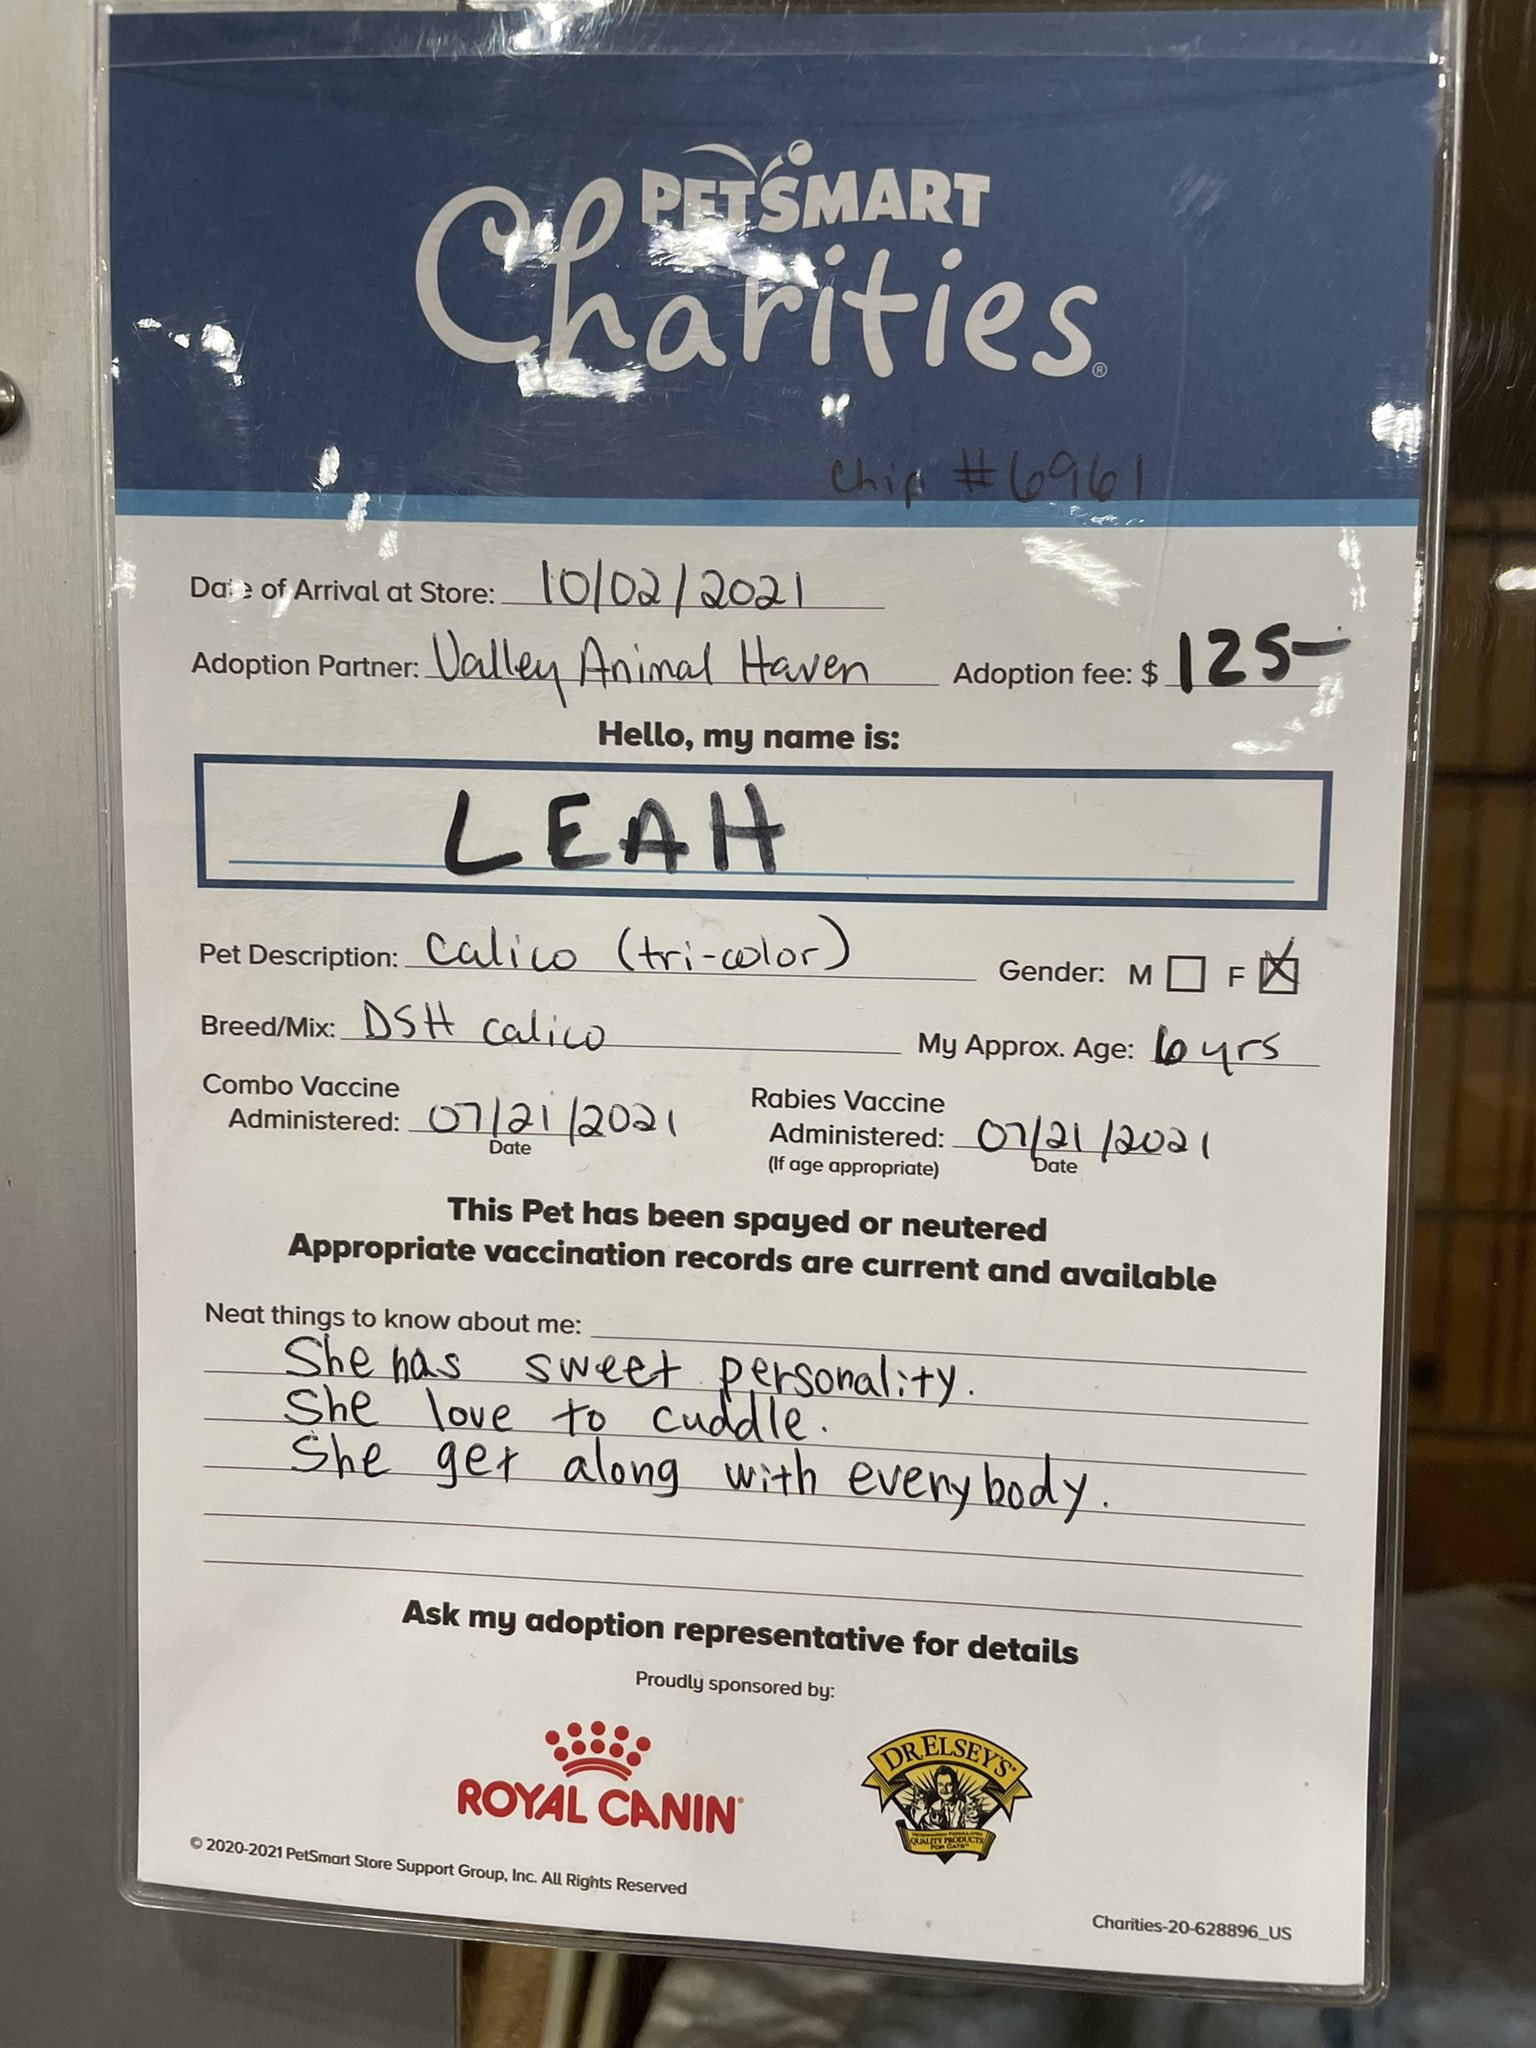 PETSMART
Charities®
Chip #6961
Date of Arrival at Store: 10/02/2021
Adoption Partner: Valley Animal Haven Adoption fee: $ 125-
Hello, my name is:
LEAH
Pet Description: Calico (tri-color) Gender: M F
Breed/Mix: DSH calico My Approx. Age: 6 yrs
Combo Vaccine
Administered: 07/21/2021
Date
Rabies Vaccine
Administered: 07/21/2021
(If age appropriate) Date
This Pet has been spayed or neutered
Appropriate vaccination records are current and available
Neat things to know about me:
She has sweet personality.
She love to cuddle.
She get along with everybody.
Ask my adoption representative for details
Proudly sponsored by:
ROYAL CANIN
DR. ELSEY'S
QUALITY PRODUCTS
FOR CATS
© 2020-2021 PetSmart Store Support Group, Inc. All Rights Reserved
Charities-20-628896_US